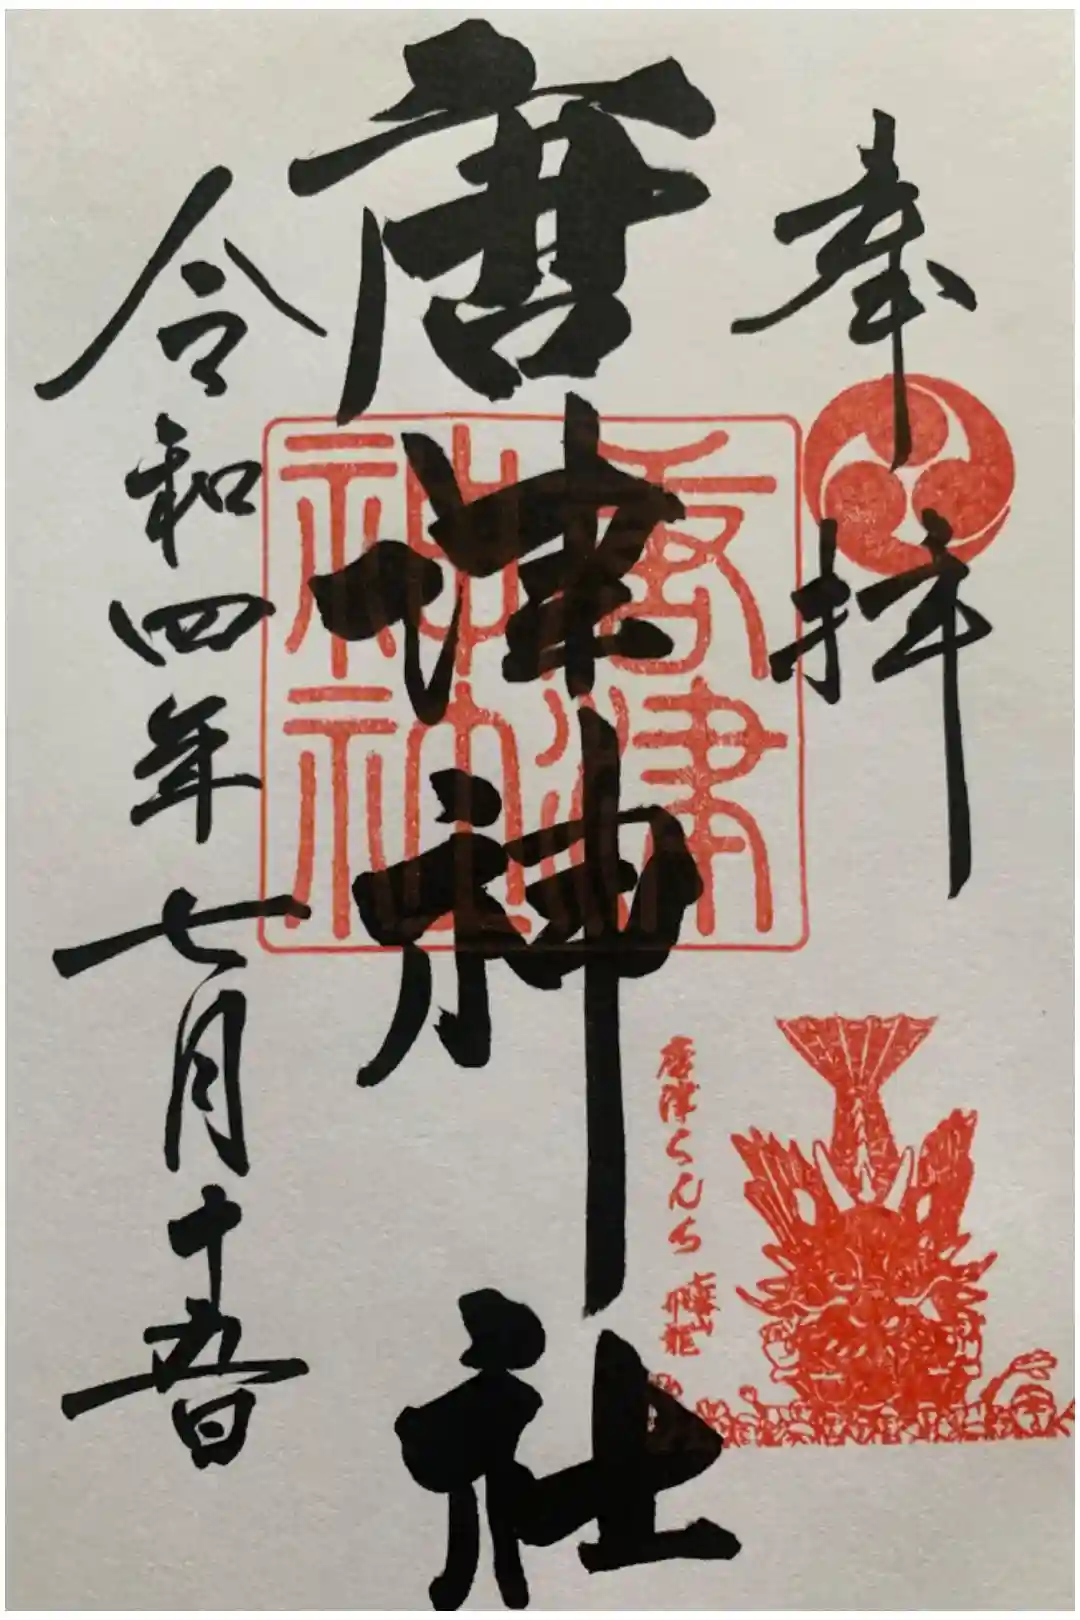 奉拝
唐津神社
唐津神社
令和四年七月十五日
唐津くんち
飛龍